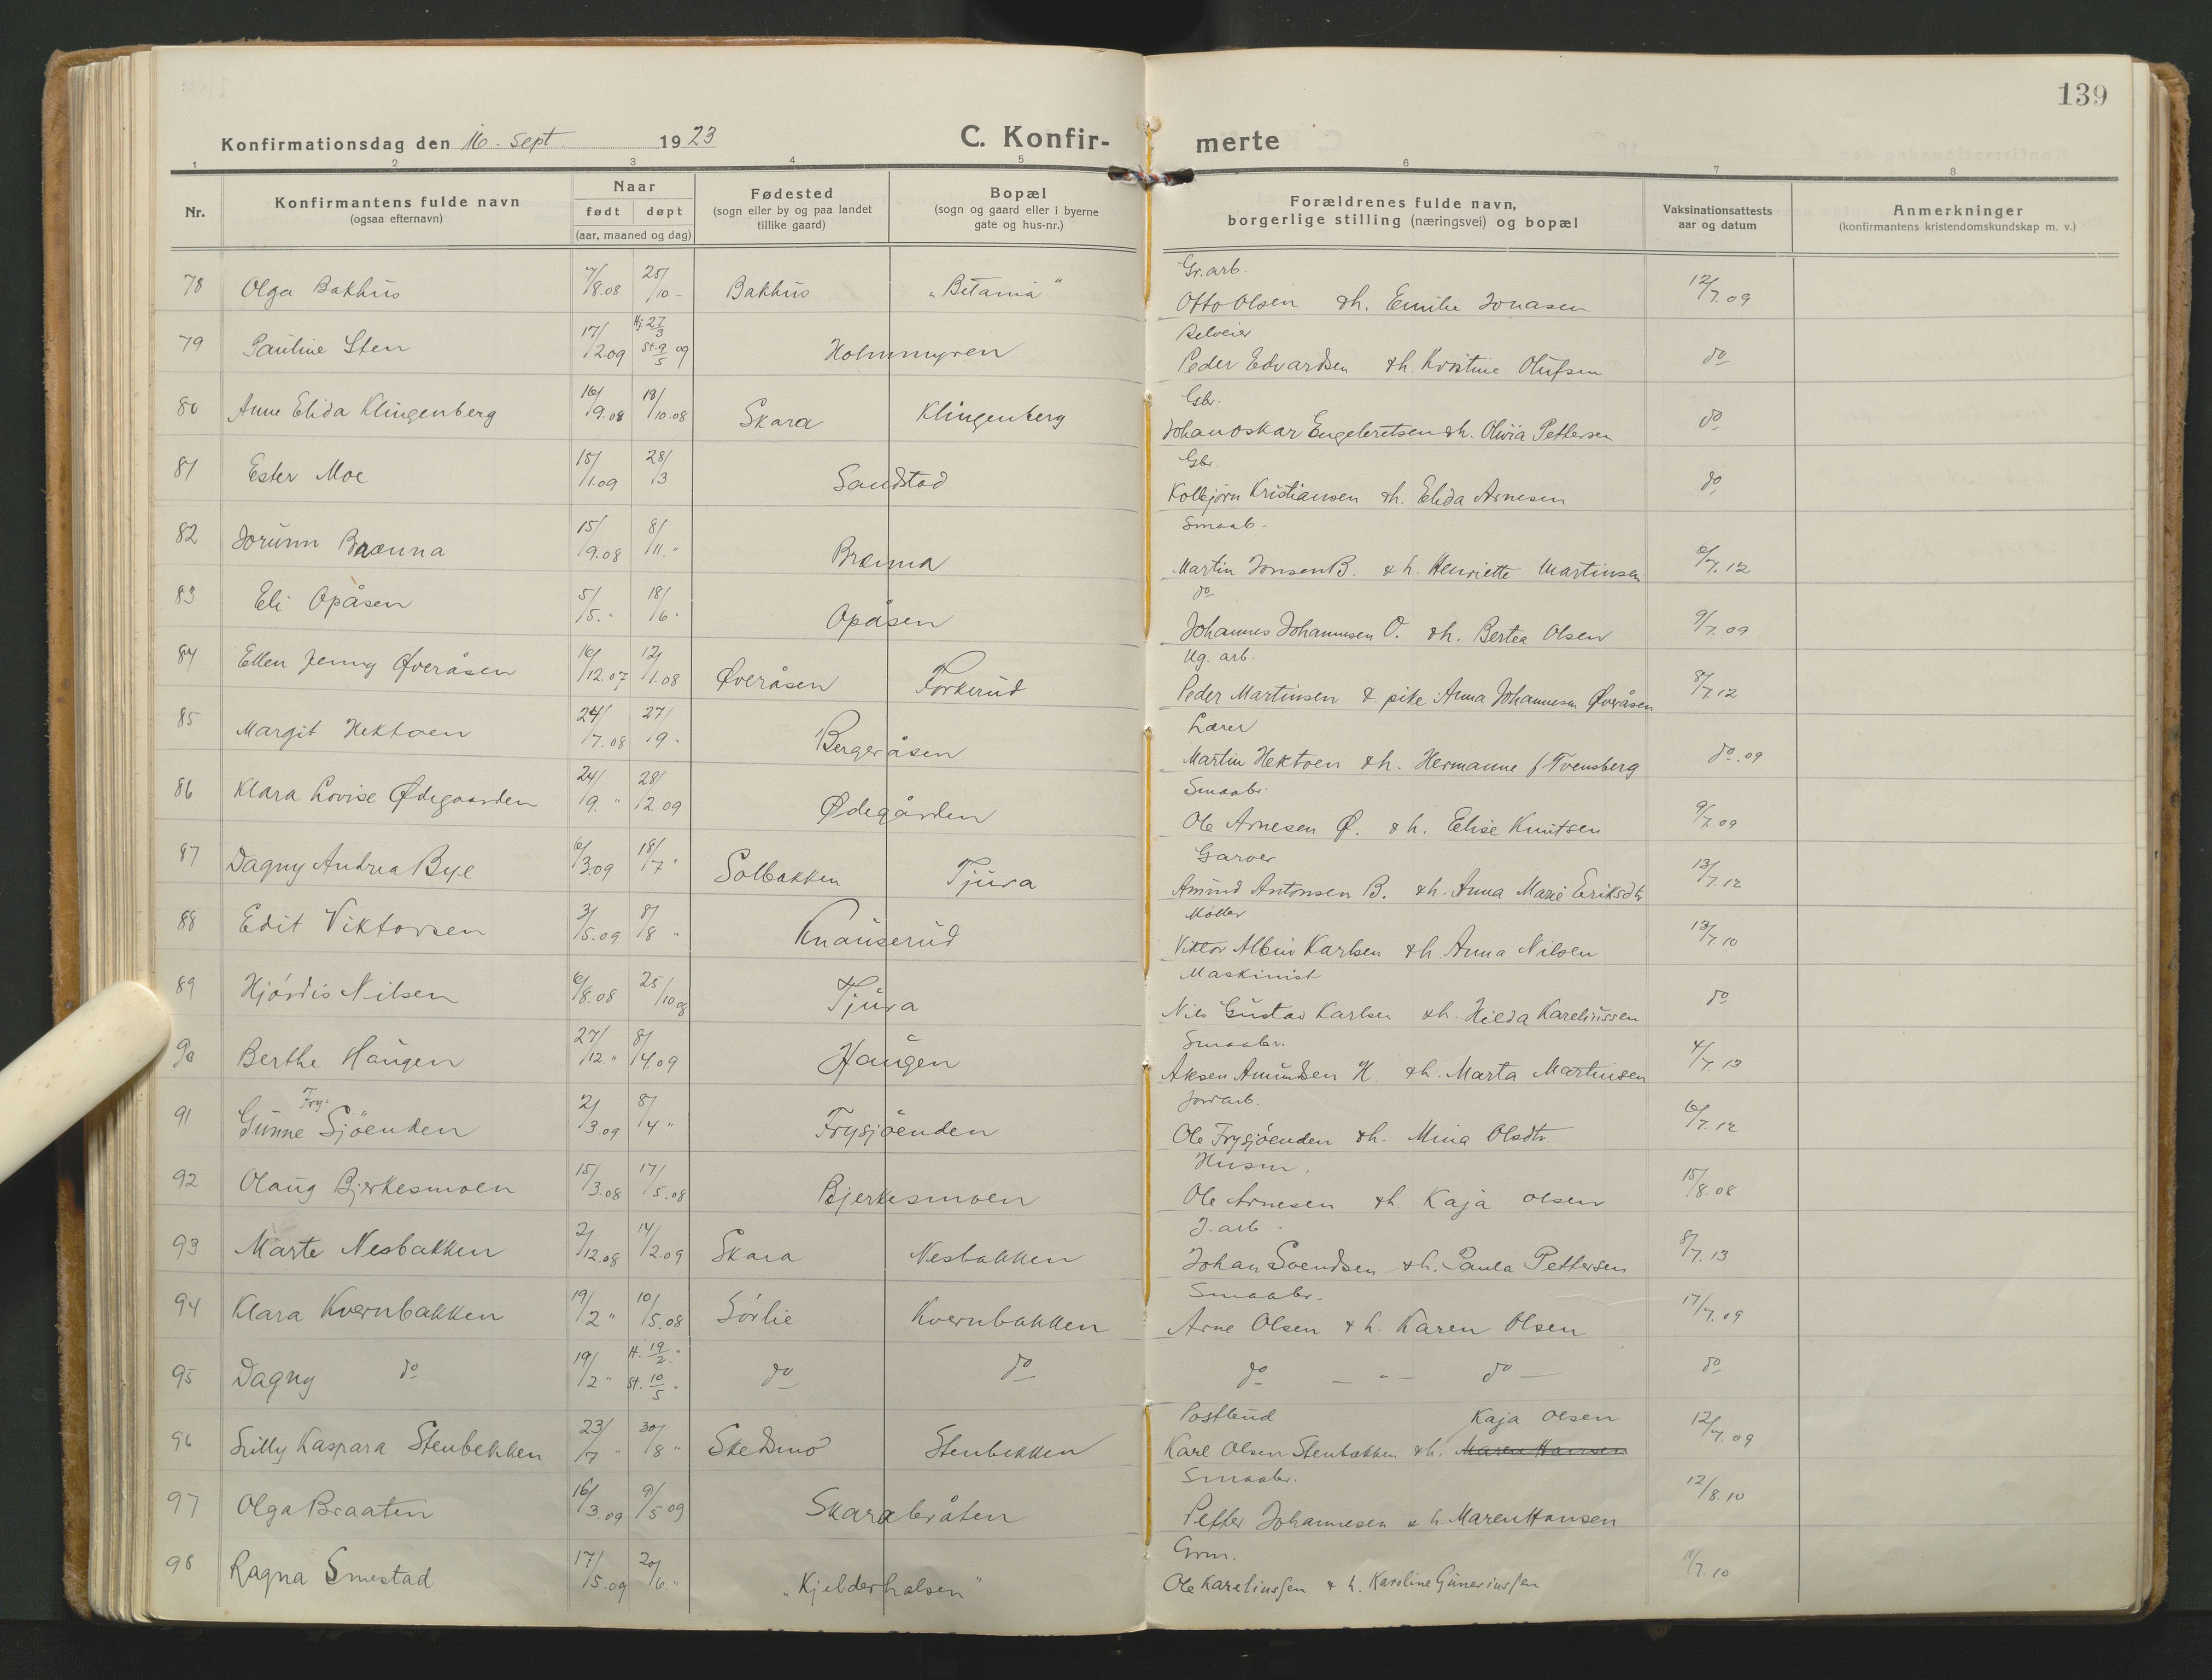 139
Konfirmationsdag den 16. sept. 1923 C. Konfir- merte
1 2 3 4 5 6 7 8
Nr. Konfirmantens fulde navn (ogsaa efternavn) Naar født døpt (aar, maaned og dag) Fødested (sogn eller by og paa landet tillike gaard) Bopæl (sogn og gaard eller i byerne gate og hus-nr.) Forældrenes fulde navn, borgerlige stilling (næringsvei) og bopæl Vaksinationsattests aar og datum Anmerkninger (konfirmantens kristendomskundskap m. v.)
Gr. arb.
78 Olga Bakhus 7/8.08 25/10 - Bakhus „Betania" Otto Olsen & h. Emilie Jonasen 12/7.09
Selveier
79 Pauline Sten 17/2.09 Hj. 27/3 St. 9/5 09 Holmmyren Peder Edvardsen & h. Kristine Olufsen do
Gbr.
80 Anne Elida Klingenberg 16/9.08 18/10.08 Skara Klingenberg Johan Oskar Engebretsen & h. Olivia Pettersen do
Gbr.
81 Ester Moe 15/1.09 28/3 Sandstad Kolbjörn Kristiansen & h. Elida Arnesen do
Smaab.
82 Jorunn Brænna 15/9.08 8/11. " Brænna Martin Jonsen B. & h. Henriette Martinsen 6/7.12
do
83 Eli Opåsen 5/5. " 18/6 " Opåsen Johannes Johannesen O. & h. Bertea Olsen 9/7.09
Ug. arb.
84 Ellen Jenny Øveråsen 16/12.07 12/1.08 Øveråsen Torkerud Peder Martinsen & pike Anna Johannesen Øveråsen 8/7.12
Lærer
85 Margit Hektoen 24/7.08 27/9 - Bergeråsen Martin Hektoen & h. Hermanne f Tvensberg do.09
Smaabr.
86 Klara Lovise Ødegaarden 24/9. " 28/12 09 Ødegården Ole Arnesen Ø. & h. Elise Knutsen 9/7.09
Garver
87 Dagny Andrea Bye 6/3.09 18/7 " Solbakken Tjura Amund Antonsen B. & h. Anna Marie Eriksdtr 13/7.12
Møller
88 Edit Viktorsen 3/5.09 8/8 " Knauserud Viktor Albin Karlsen & h Anna Nilsen 13/7.10
Maskinist
89 Hjördis Nilsen 6/8.08 25/10 08 Tjura Nils Gustav Karlsen & h. Hilda Kareliussen do
Smaabr.
90 Berthe Haugen 27/12. " 8/4.09 Haugen Aksen Amundsen H. & h. Marta Martinsen 4/7.13
Jordarb.
91 Gunne Fry-Sjöenden 2/3.09 8/4 " Frysjöenden Ole Frysjöenden & h. Mina Olsdtr. 6/7.12
Husm.
92 Olaug Bjerkesmoen 15/3.08 17/5.08 Bjerkesmoen Ole Arnesen & h. Kaja Olsen 15/8.08
J. arb.
93 Marte Nesbakken 2/12.08 14/2.09 Skara Nesbakken Johan Svendsen & h. Paula Pettersen 8/7.13
Smaabr.
94 Klara Kvernbakken 19/2 " 10/5.08 Sörlie Kvernbakken Arne Olsen & h. Karen Olsen 17/7.09
95 Dagny do 19/2 " H. 19/2. " St. 10/5 " do do do — " — do — do
Postbud Kaja Olsen
96 Lilly Kaspara Stenbekken 23/7 " 30/8 " Skedsmo Stenbekken Karl Olsen Stenbækken & h. Maren Hansen 12/7.09
Smaabr.
97 Olga Braaten 16/3.09 9/5 09 Skarabråten Petter Johannesen & h. Maren Hansen 12/8.10
Grm.
98 Ragna Smestad 17/5.09 20/6. " „Kjelderhalsen" Ole Kareliussen & h. Karoline Gunerius­sen 11/7.10